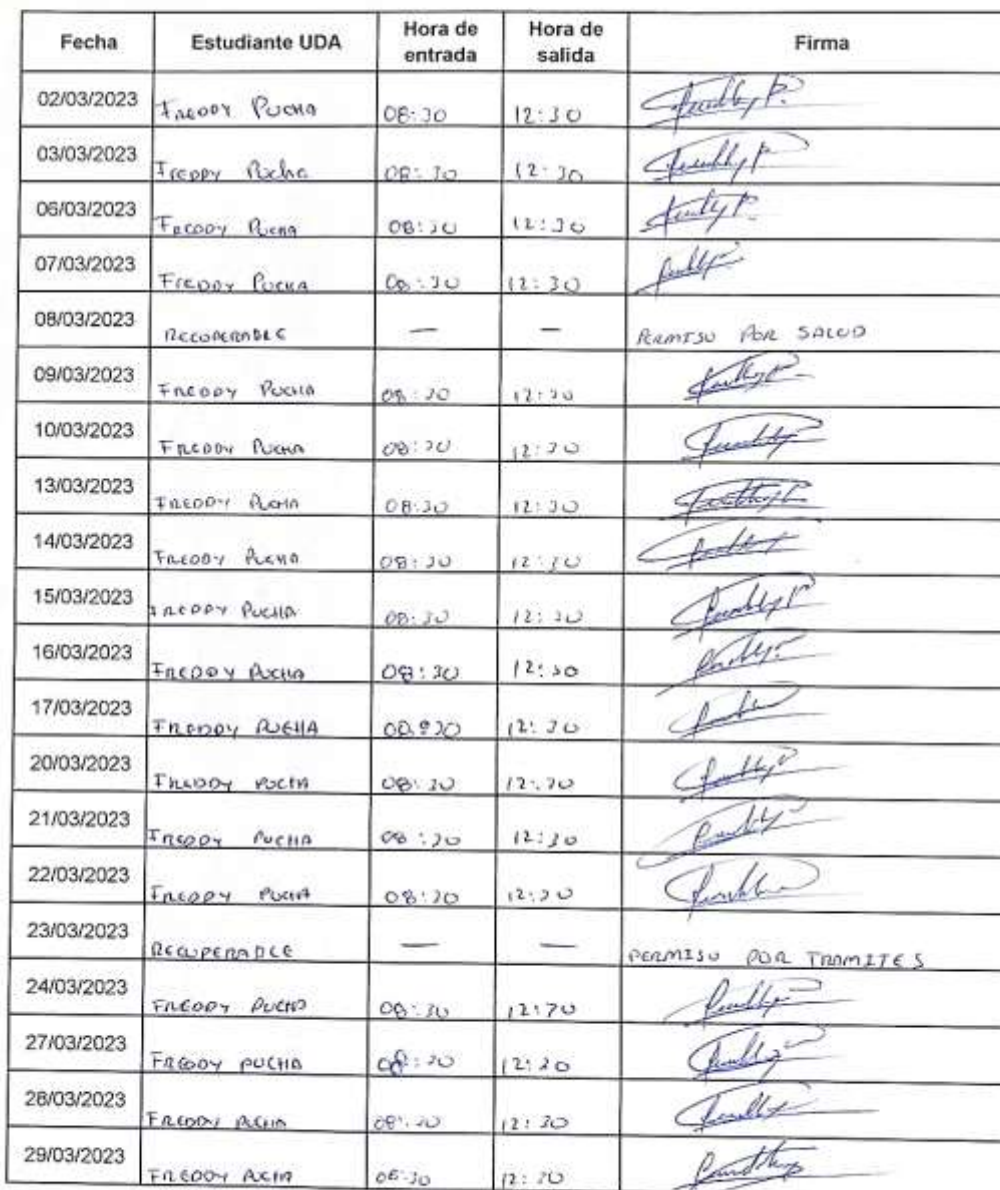 Fecha Estudiante UDA Hora de entrada Hora de salida Firma
02/03/2023 FREDDY PUCHA 08:30 12:30
03/03/2023 FREDDY Pucha 08:30 12:30
06/03/2023 FREDDY PUCHA 08:30 12:30
07/03/2023 FREDDY PUCHA 08:30 12:30
08/03/2023 RECUPERABLE — — PERMISO POR SALUD
09/03/2023 FREDDY PUCHA 08:30 12:30
10/03/2023 FREDDY PUCHA 08:30 12:30
13/03/2023 FREDDY PUCHA 08:30 12:30
14/03/2023 FREDDY PUCHA 08:30 12:30
15/03/2023 FREDDY PUCHA 08:30 12:30
16/03/2023 FREDDY PUCHA 08:30 12:30
17/03/2023 FREDDY PUCHA 08:30 12:30
20/03/2023 FREDDY PUCHA 08:30 12:30
21/03/2023 FREDDY PUCHA 08:30 12:30
22/03/2023 FREDDY PUCHA 08:30 12:30
23/03/2023 RECUPERABLE — — PERMISO POR TRAMITES
24/03/2023 FREDDY PUCHA 08:30 12:30
27/03/2023 FREDDY PUCHA 08:30 12:30
28/03/2023 FREDDY PUCHA 08:30 12:30
29/03/2023 FREDDY PUCHA 08:30 12:30